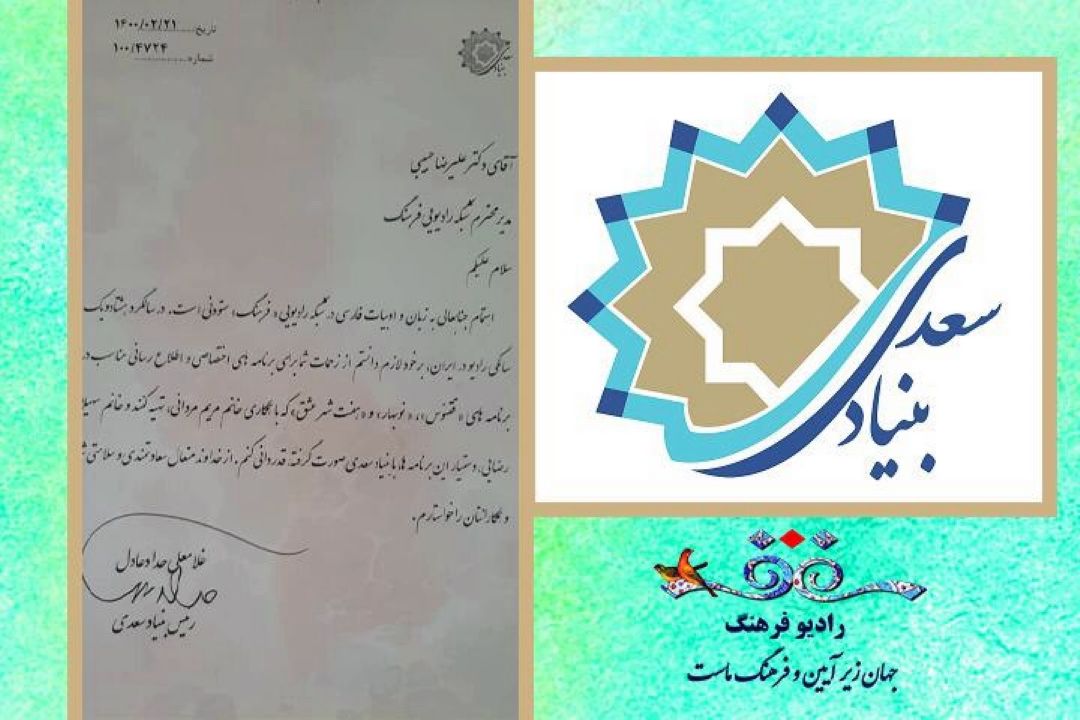 تاریخ ۱۴۰۰/۰۲/۲۱
شماره ۱۰۰/۴۷۲۴
بنیاد سعدی
آقای دکتر علیرضا حبیبی
مدیر محترم شبکه رادیویی فرهنگ
سلام علیکم
اهتمام جنابعالی به زبان و ادبیات فارسی در شبکه رادیویی «فرهنگ» ستودنی است. در سالگرد هشتاد و یک
سالگی رادیو در ایران، برخود لازم دانستم از زحمات شما برای برنامه های اختصاصی و اطلاع رسانی مناسب در
برنامه های «ققنوس»، «نوبهار» و «هفت شهر عشق» که با همکاری خانم مریم مردانی، تهیه کننده و خانم سهیلا
رضایی، دستیار این برنامه ها با بنیاد سعدی صورت گرفته، قدردانی کنم. از خداوند متعال سعادتمندی و سلامتی
و همکارانتان را خواستارم.
غلامعلی حداد عادل
رئیس بنیاد سعدی
بنیاد سعدی
رادیو فرهنگ
جهان زیر آیین و فرهنگ ماست